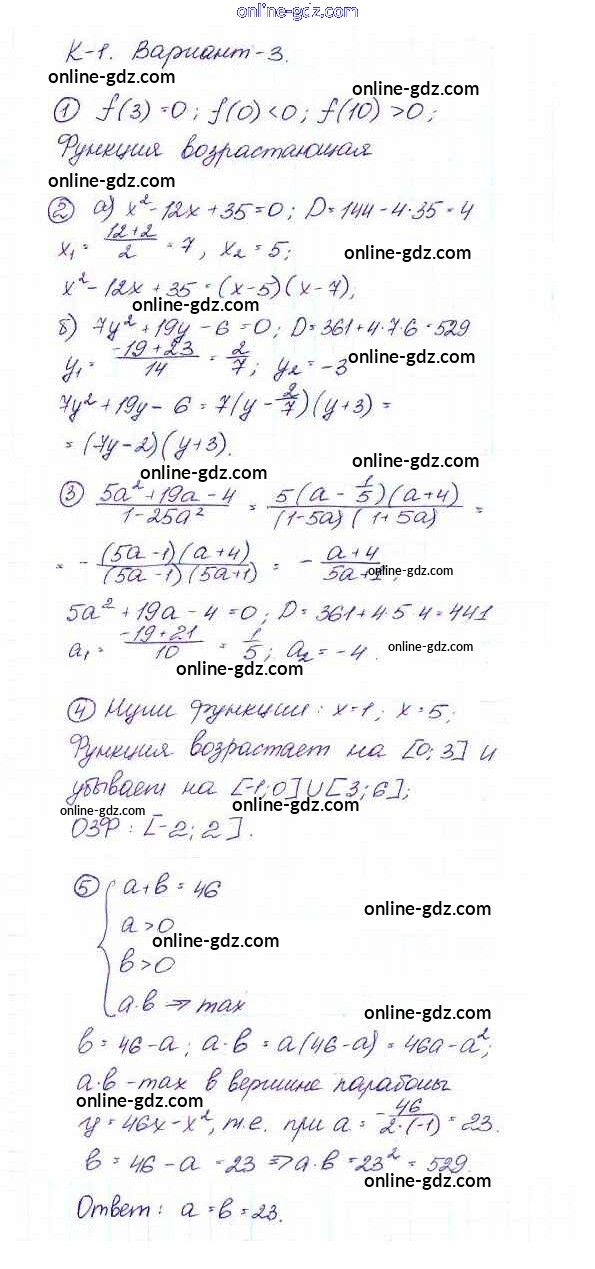 online-gdz.com
К-1. Вариант-3.
online-gdz.com
① f(3)=0; f(0)<0; f(10)>0;
Функция возрастающая
online-gdz.com
② а) x²-12x+35=0; D=144-4·35=4
x₁= (12+2)/2 = 7, x₂=5;
online-gdz.com
x²-12x+35=(x-5)(x-7);
online-gdz.com
б) 7y²+19y-6=0; D=361+4·7·6=529
y₁= (-19+23)/14 = 2/7; y₂=-3
online-gdz.com
7y²+19y-6=7(y-2/7)(y+3)=
=(7y-2)(y+3).
online-gdz.com
③ (5a²+19a-4)/(1-25a²) = (5(a-1/5)(a+4))/((1-5a)(1+5a)) =
= -((5a-1)(a+4))/((5a-1)(5a+1)) = -(a+4)/(5a+1);
online-gdz.com
5a²+19a-4=0; D=361+4·5·4=441
a₁= (-19+21)/10 = 1/5; a₂=-4.
online-gdz.com
online-gdz.com
④ Нули функции: x=1; x=5;
Функция возрастает на [0;3] и
убывает на [-1;0]∪[3;6];
online-gdz.com
ОЗФ: [-2;2].
⑤ { a+b=46
online-gdz.com
a>0
online-gdz.com
b>0
a·b ⇒ max
online-gdz.com
b=46-a; a·b=a(46-a)=46a-a²;
a·b-max в вершине параболы
online-gdz.com
online-gdz.com
y=46x-x², т.е. при a= -46/(2·(-1)) = 23.
b=46-a=23⇒a·b=23²=529.
online-gdz.com
Ответ: a=b=23.